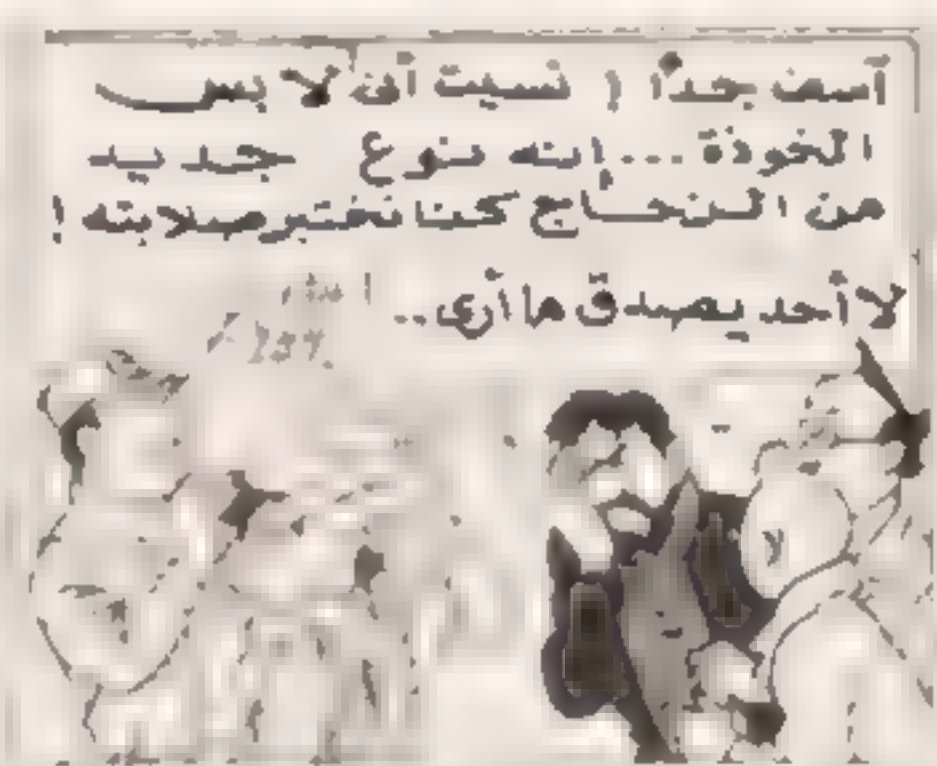 آسف جداً ! نسيت أن لابس
الخوذة ... إنه نوع جديد
من الزجاج كنا نختبر صلابته !
لا أحد يصدق ما أرى ..